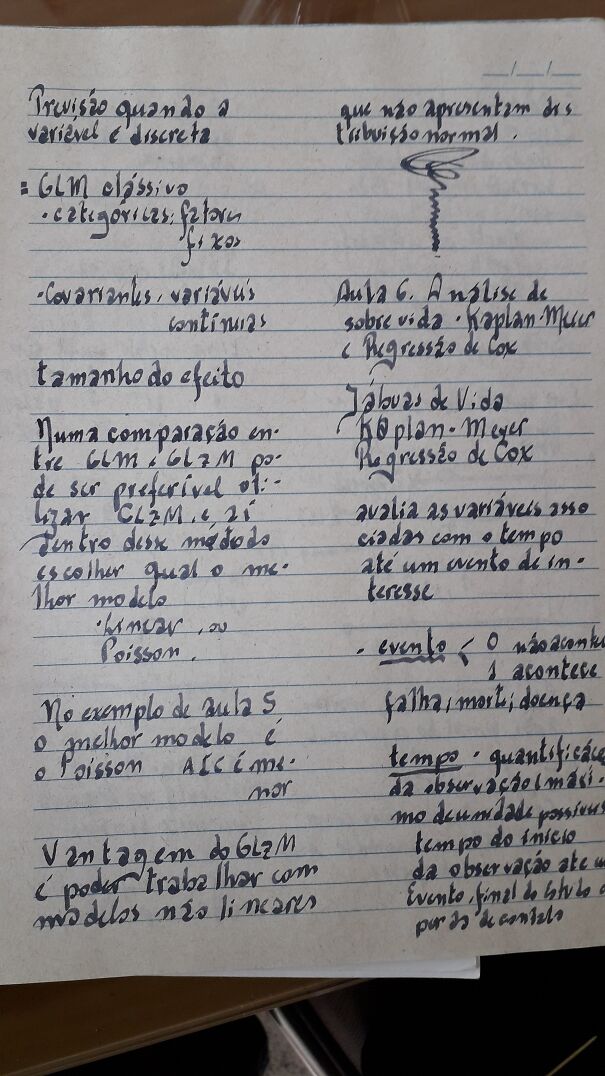 Previsão quando a
variável é discreta
= GLM clássivo
· categóricas; fatores
· fixos
· Covariantes, variáveis
contínuas
tamanho do efeito
Numa comparação en-
tre GLM e GLzM po-
de ser preferível uti-
lizar GLzM, e aí
dentro desse método
escolher qual o me-
lhor modelo
· Linear, ou
Poisson.
No exemplo de aula 5
o melhor modelo é
o Poisson AIC é me-
nor
Vantagem do GLzM
é poder trabalhar com
modelos não lineares
que não apresentam dis
tribuisão normal.
Aula 6. Análise de
sobrevida · Kaplan-Meyer
e Regressão de Cox
Tábuas de Vida
Kaplan-Meyer
Regressão de Cox
avalia as variáveis asso
ciadas com o tempo
até um evento de in-
teresse
· evento < 0 não aconte
1 acontece
falha, morte, doença
tempo · quantificác
da observação (mási-
mo de unidade possíveis
tempo do início
da observação ate u
Evento, final do Estudo o
perda de contato